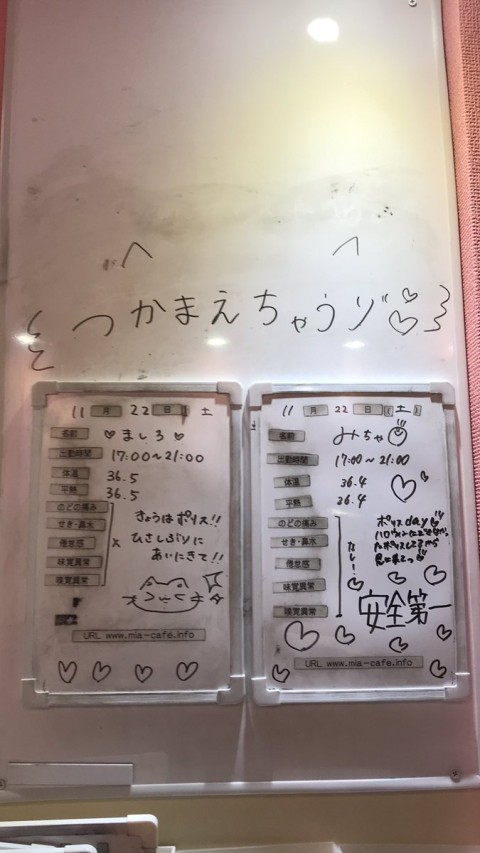 つかまえちゃうゾ♡♡
11 月 22 日 土
名前 ♡ ましろ ♡
出勤時間 17:00〜21:00
体温 36.5
平熱 36.5
のどの痛み
せき・鼻水
倦怠感 ×
味覚異常
嗅覚異常
きょうはポリス!!
ひさしぶりに
あいにきて!!
URL www.mia-cafe.info
11 月 22 日 (土)
名前 みちゃ
出勤時間 17:00〜21:00
体温 36.4
平熱 36.4
のどの痛み
せき・鼻水
倦怠感 なし!
味覚異常
嗅覚異常
ポリスday
安全第一
URL www.mia-cafe.info